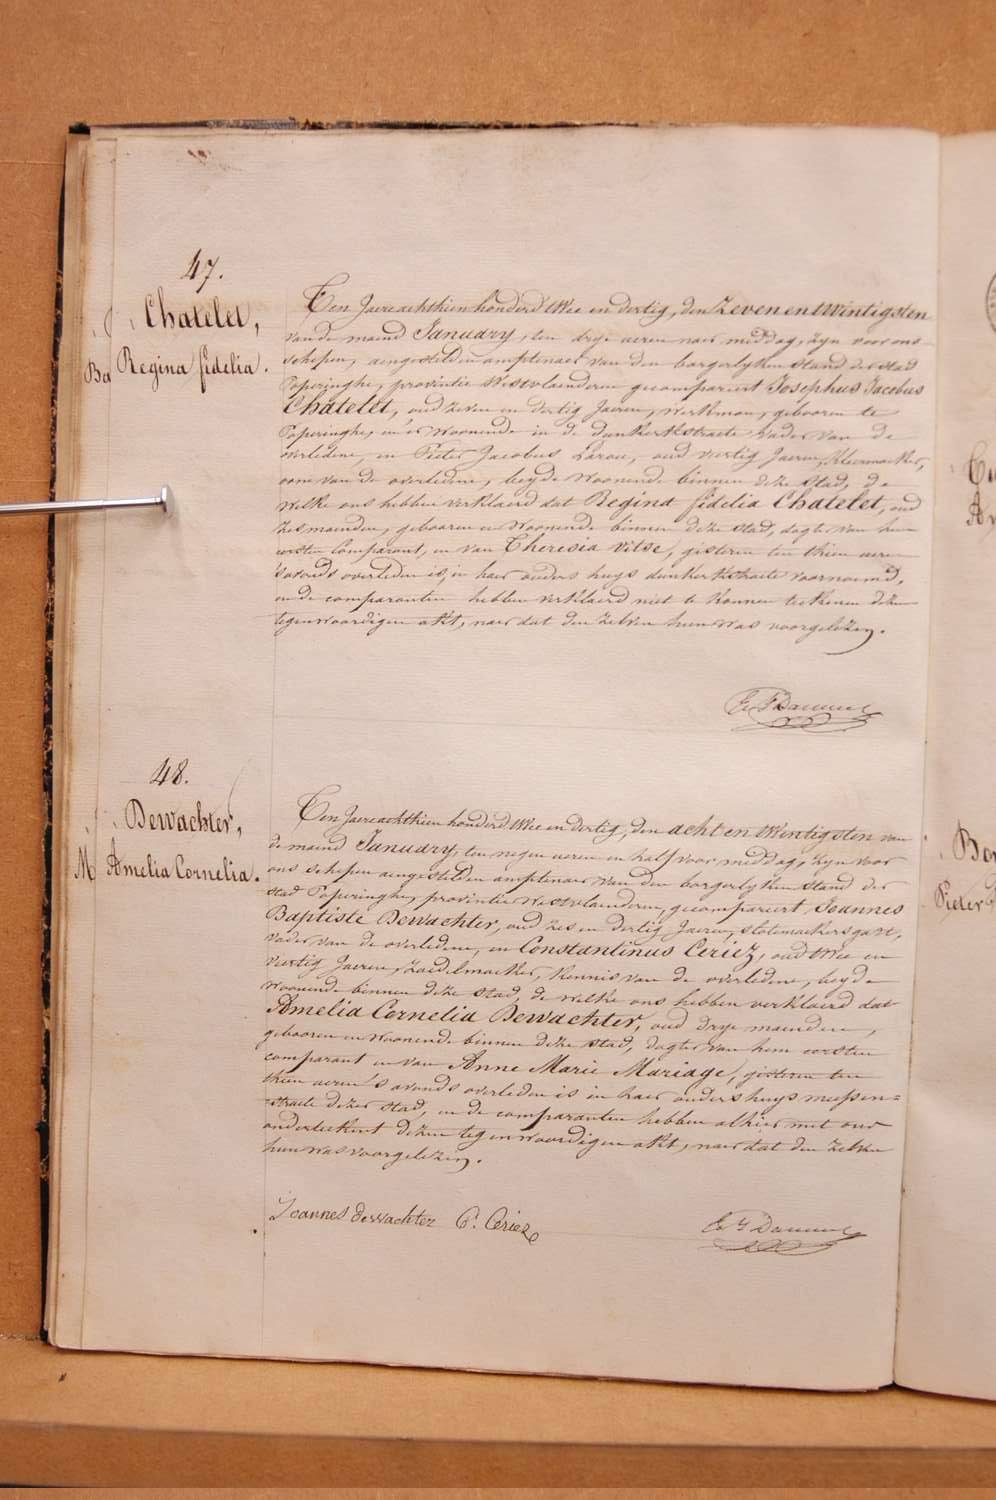 47.
Chatelet,
Regina fidelia.
Ba
Ten Jaere achthien honderd twee en dertig, den zeven en twintigsten
van de maend January, ten drye ueren naer middag, zyn voor ons
schepen, aengestelden amptenaer van den borgerlyken stand der stad
Poperinghe, provintie Westvlaenderen gecompareert Josephus Jacobus
Chatelet, oud zeven en dertig Jaeren, werkman, gebooren te
Poperinghe, en er woonende in de Dunkerkstraete vader van de
overledene, en Pieter Jacobus Larou, oud veertig Jaeren, kleermaeker,
oom van de overledene, beyde woonende binnen deze stad, de
welke ons hebben verklaerd dat Regina fidelia Chatelet, oud
zes maenden, gebooren en woonende binnen deze stad, dogter van hun
eersten Comparant, en van Theresia Vitse, gisteren ten thien ueren
's avonds overleden is, in haer ouders huys dunkerkstraete voornoemd,
en de comparanten hebben verklaerd niet te konnen teekenen dezen
tegenwoordigen akt, naer dat den zelven hun was voorgelezen.
48.
Dewachter,
Amelia Cornelia.
M
Ten Jaere achthien honderd twee en dertig, den acht en twintigsten van
de maend January, ten negen ueren en half voor middag, zyn voor
ons schepen aengestelden amptenaer van den borgerlyken stand der
stad Poperinghe, provintie Westvlaenderen, gecompareert Joannes
Baptiste Dewachter, oud zes en dertig Jaeren, slotemaekersgast,
vader van de overledene, en Constantinus Ceriez, oud twee en
veertig Jaeren, zaedelmaeker, kennis van de overledene, beyde
woonende binnen deze stad, de welke ons hebben verklaerd dat
Amelia Cornelia Dewachter, oud drye maenden,
gebooren en woonende binnen deze stad, dogter van hem eersten
comparant en van Anne Marie Mariage, gisteren ten
thien ueren 's avonds overleden is in haer ouders huys meessen=
straete dezer stad, en de comparanten hebben alhier met ons
onderteekent dezen tegenwoordigen akt, naer dat den zelven
hun was voorgelezen.
Joannes dewachter C. Ceriez